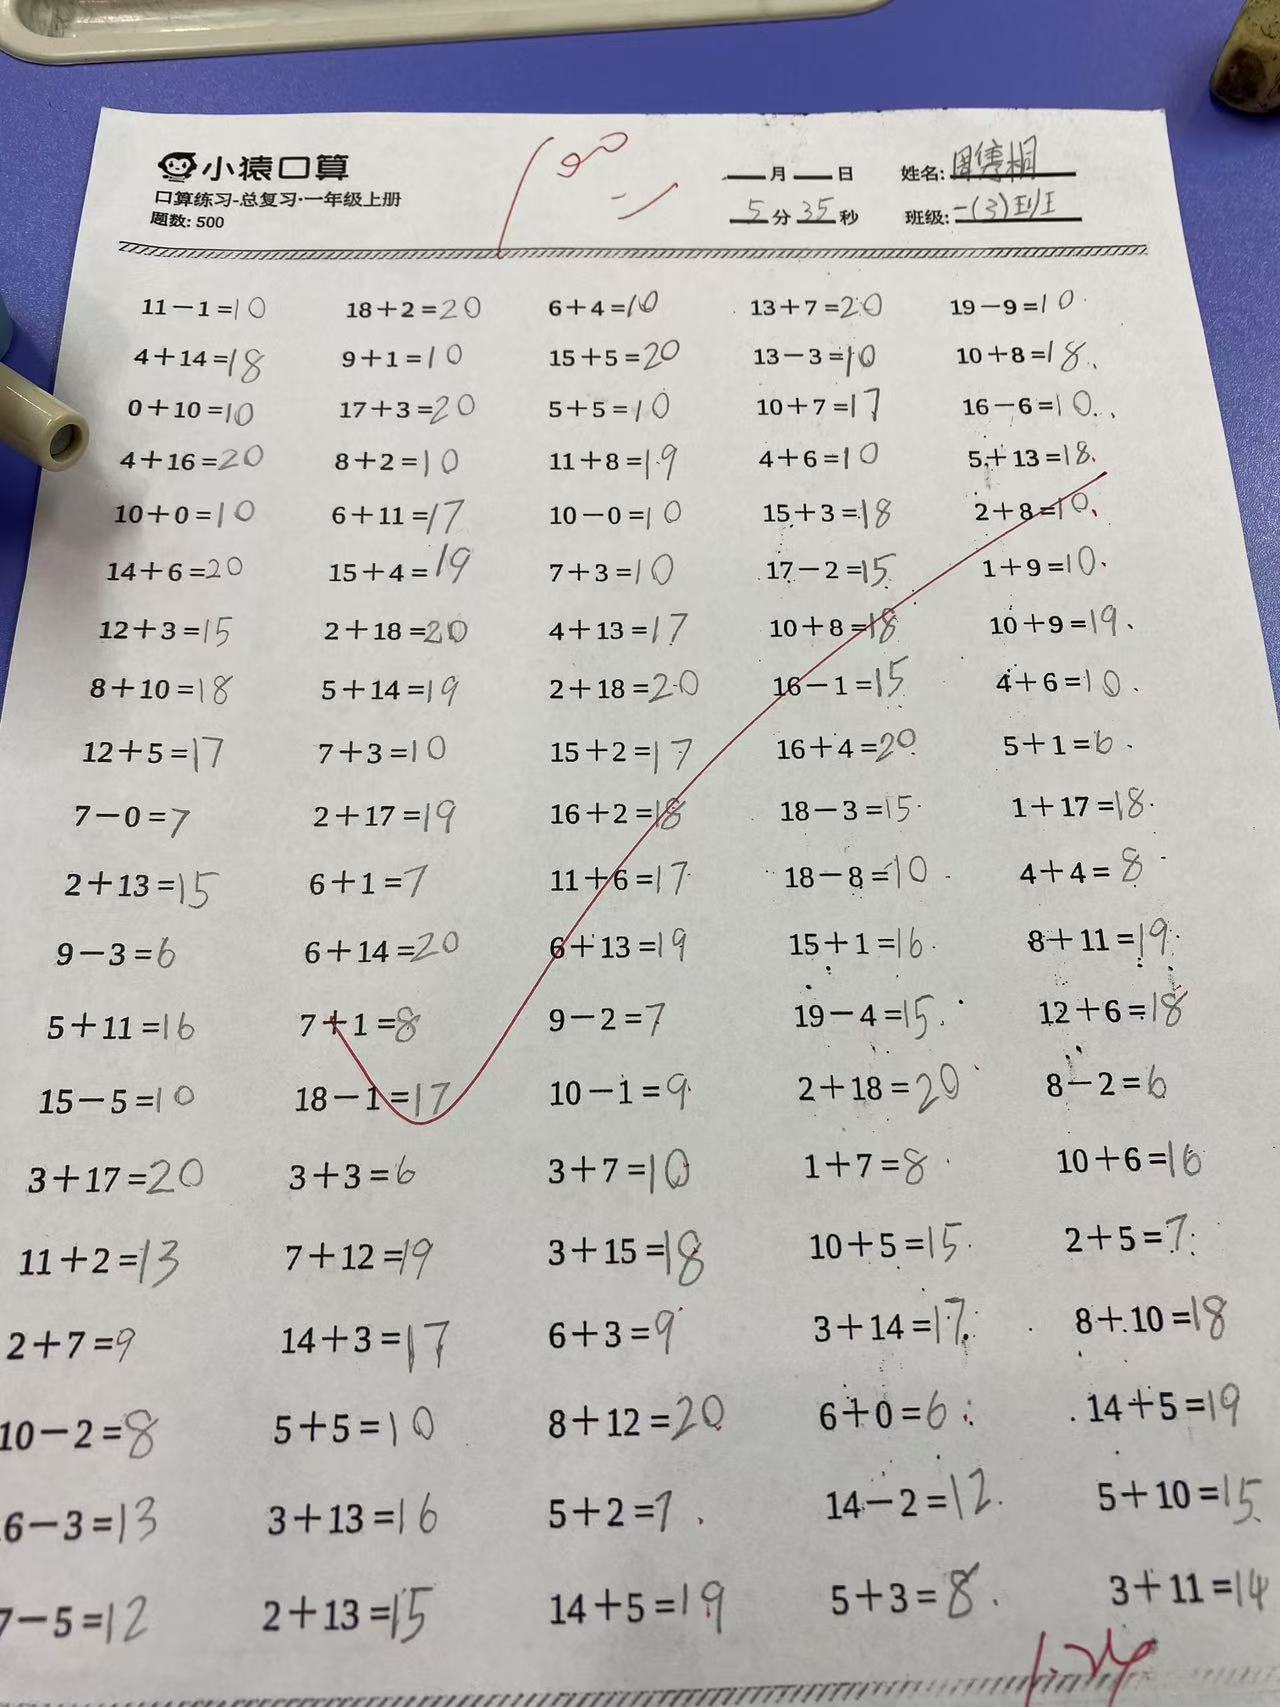 小猿口算
口算练习-总复习·一年级上册
题数: 500
100
月 日 姓名:
5 分 35 秒 班级: 一(3)班
11－1=10 18＋2=20 6＋4=10 13＋7=20 19－9=10
4＋14=18 9＋1=10 15＋5=20 13－3=10 10＋8=18
0＋10=10 17＋3=20 5＋5=10 10＋7=17 16－6=10
4＋16=20 8＋2=10 11＋8=19 4＋6=10 5＋13=18
10＋0=10 6＋11=17 10－0=10 15＋3=18 2＋8=10
14＋6=20 15＋4=19 7＋3=10 17－2=15 1＋9=10
12＋3=15 2＋18=20 4＋13=17 10＋8=18 10＋9=19
8＋10=18 5＋14=19 2＋18=20 16－1=15 4＋6=10
12＋5=17 7＋3=10 15＋2=17 16＋4=20 5＋1=6
7－0=7 2＋17=19 16＋2=18 18－3=15 1＋17=18
2＋13=15 6＋1=7 11＋6=17 18－8=10 4＋4=8
9－3=6 6＋14=20 6＋13=19 15＋1=16 8＋11=19
5＋11=16 7＋1=8 9－2=7 19－4=15 12＋6=18
15－5=10 18－1=17 10－1=9 2＋18=20 8－2=6
3＋17=20 3＋3=6 3＋7=10 1＋7=8 10＋6=16
11＋2=13 7＋12=19 3＋15=18 10＋5=15 2＋5=7
2＋7=9 14＋3=17 6＋3=9 3＋14=17 8＋10=18
10－2=8 5＋5=10 8＋12=20 6＋0=6 14＋5=19
6－3=13 3＋13=16 5＋2=7 14－2=12 5＋10=15
7－5=12 2＋13=15 14＋5=19 5＋3=8 3＋11=14